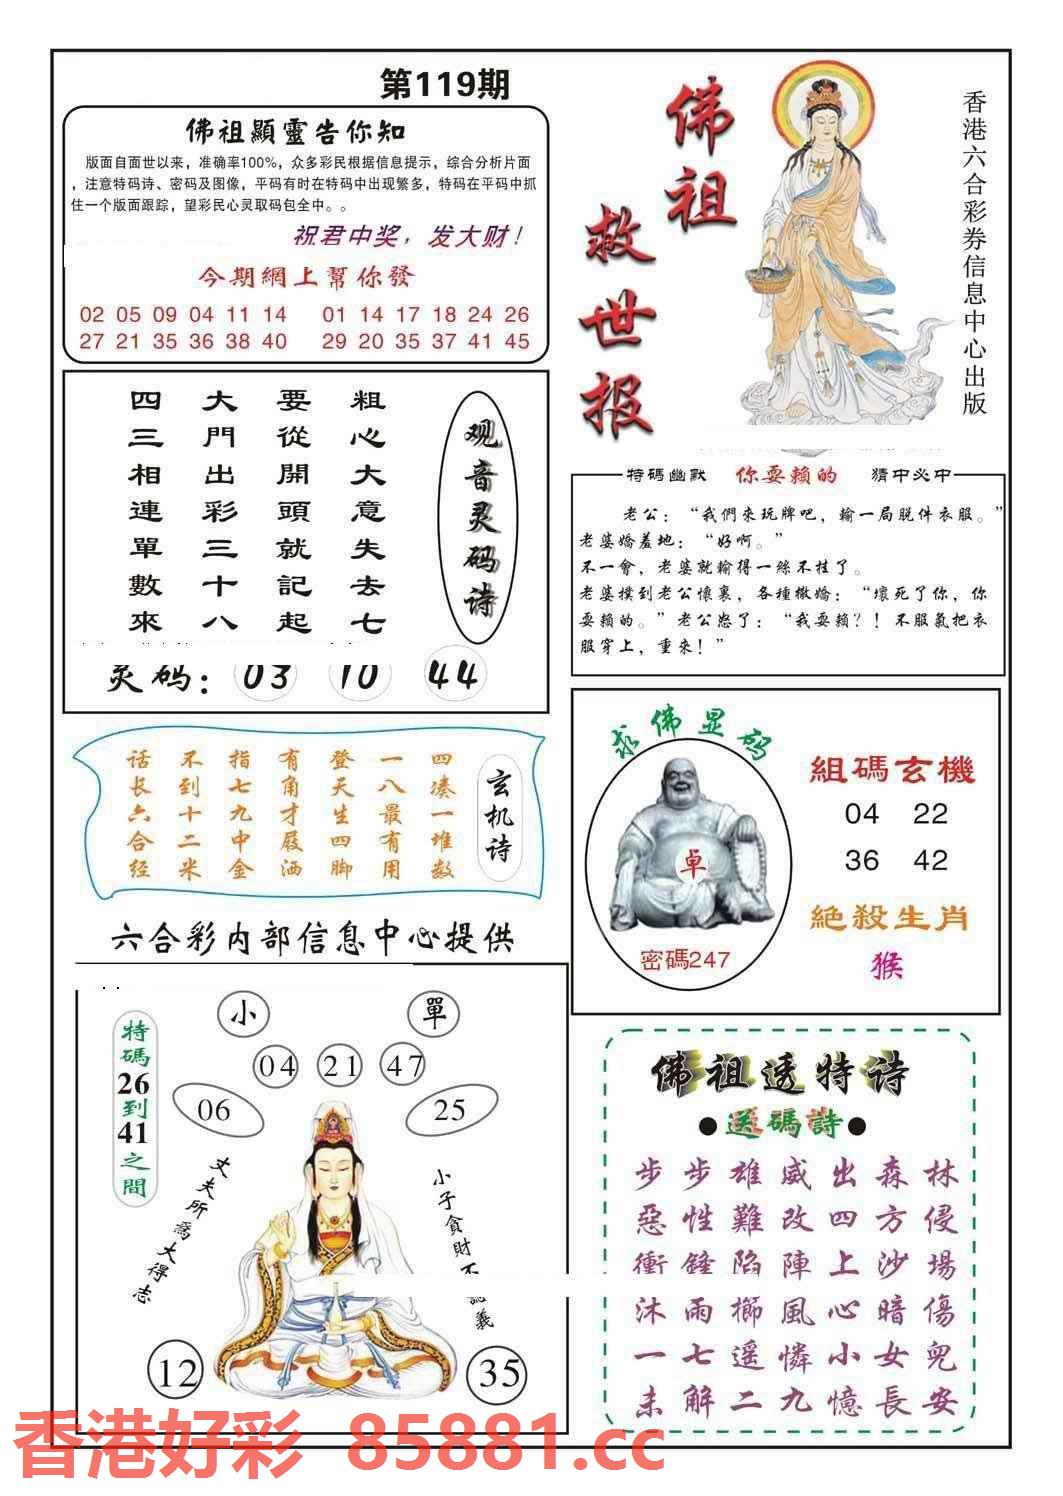 第119期
佛祖顯靈告你知
版面自面世以来，准确率100%，众多彩民根据信息提示，综合分析片面
，注意特码诗、密码及图像，平码有时在特码中出现繁多，特码在平码中抓
住一个版面跟踪，望彩民心灵取码包全中。。
祝君中奖，发大财！
今期網上幫你發
02 05 09 04 11 14 01 14 17 18 24 26
27 21 35 36 38 40 29 20 35 37 41 45
佛祖
救世报
香港六合彩券信息中心出版
观音灵码诗
粗心大意失去七
要從開頭就記起
大門出彩三十八
四三相連單數來
灵码：03 10 44
特碼幽默 你耍賴的 猜中必中
老公：“我們來玩牌吧，輸一局脱件衣服。”
老婆嬌羞地：“好啊。”
不一會，老婆就輸得一絲不挂了。
老婆撲到老公懷裏，各種撒嬌：“壞死了你，你
耍賴的。”老公怒了：“我耍賴？！不服氣把衣
服穿上，重來！”
玄机诗
四凑一堆数
一八最有用
登天生四脚
有角才屐洒
指七九中金
不到十二米
话长六合经
求佛显码
卓
密碼247
組碼玄機
04 22
36 42
絕殺生肖
猴
六合彩内部信息中心提供
特碼26到41之間
小 單
04 21 47
06 25
丈夫所爲大得志
小子貪財不 義
12 35
佛祖透特诗
●送碼詩●
步步雄威出森林
惡性難改四方侵
衝鋒陷陣上沙場
沐雨櫛風心暗傷
一七遥憐小女兒
未解二九憶長安
香港好彩 85881.cc